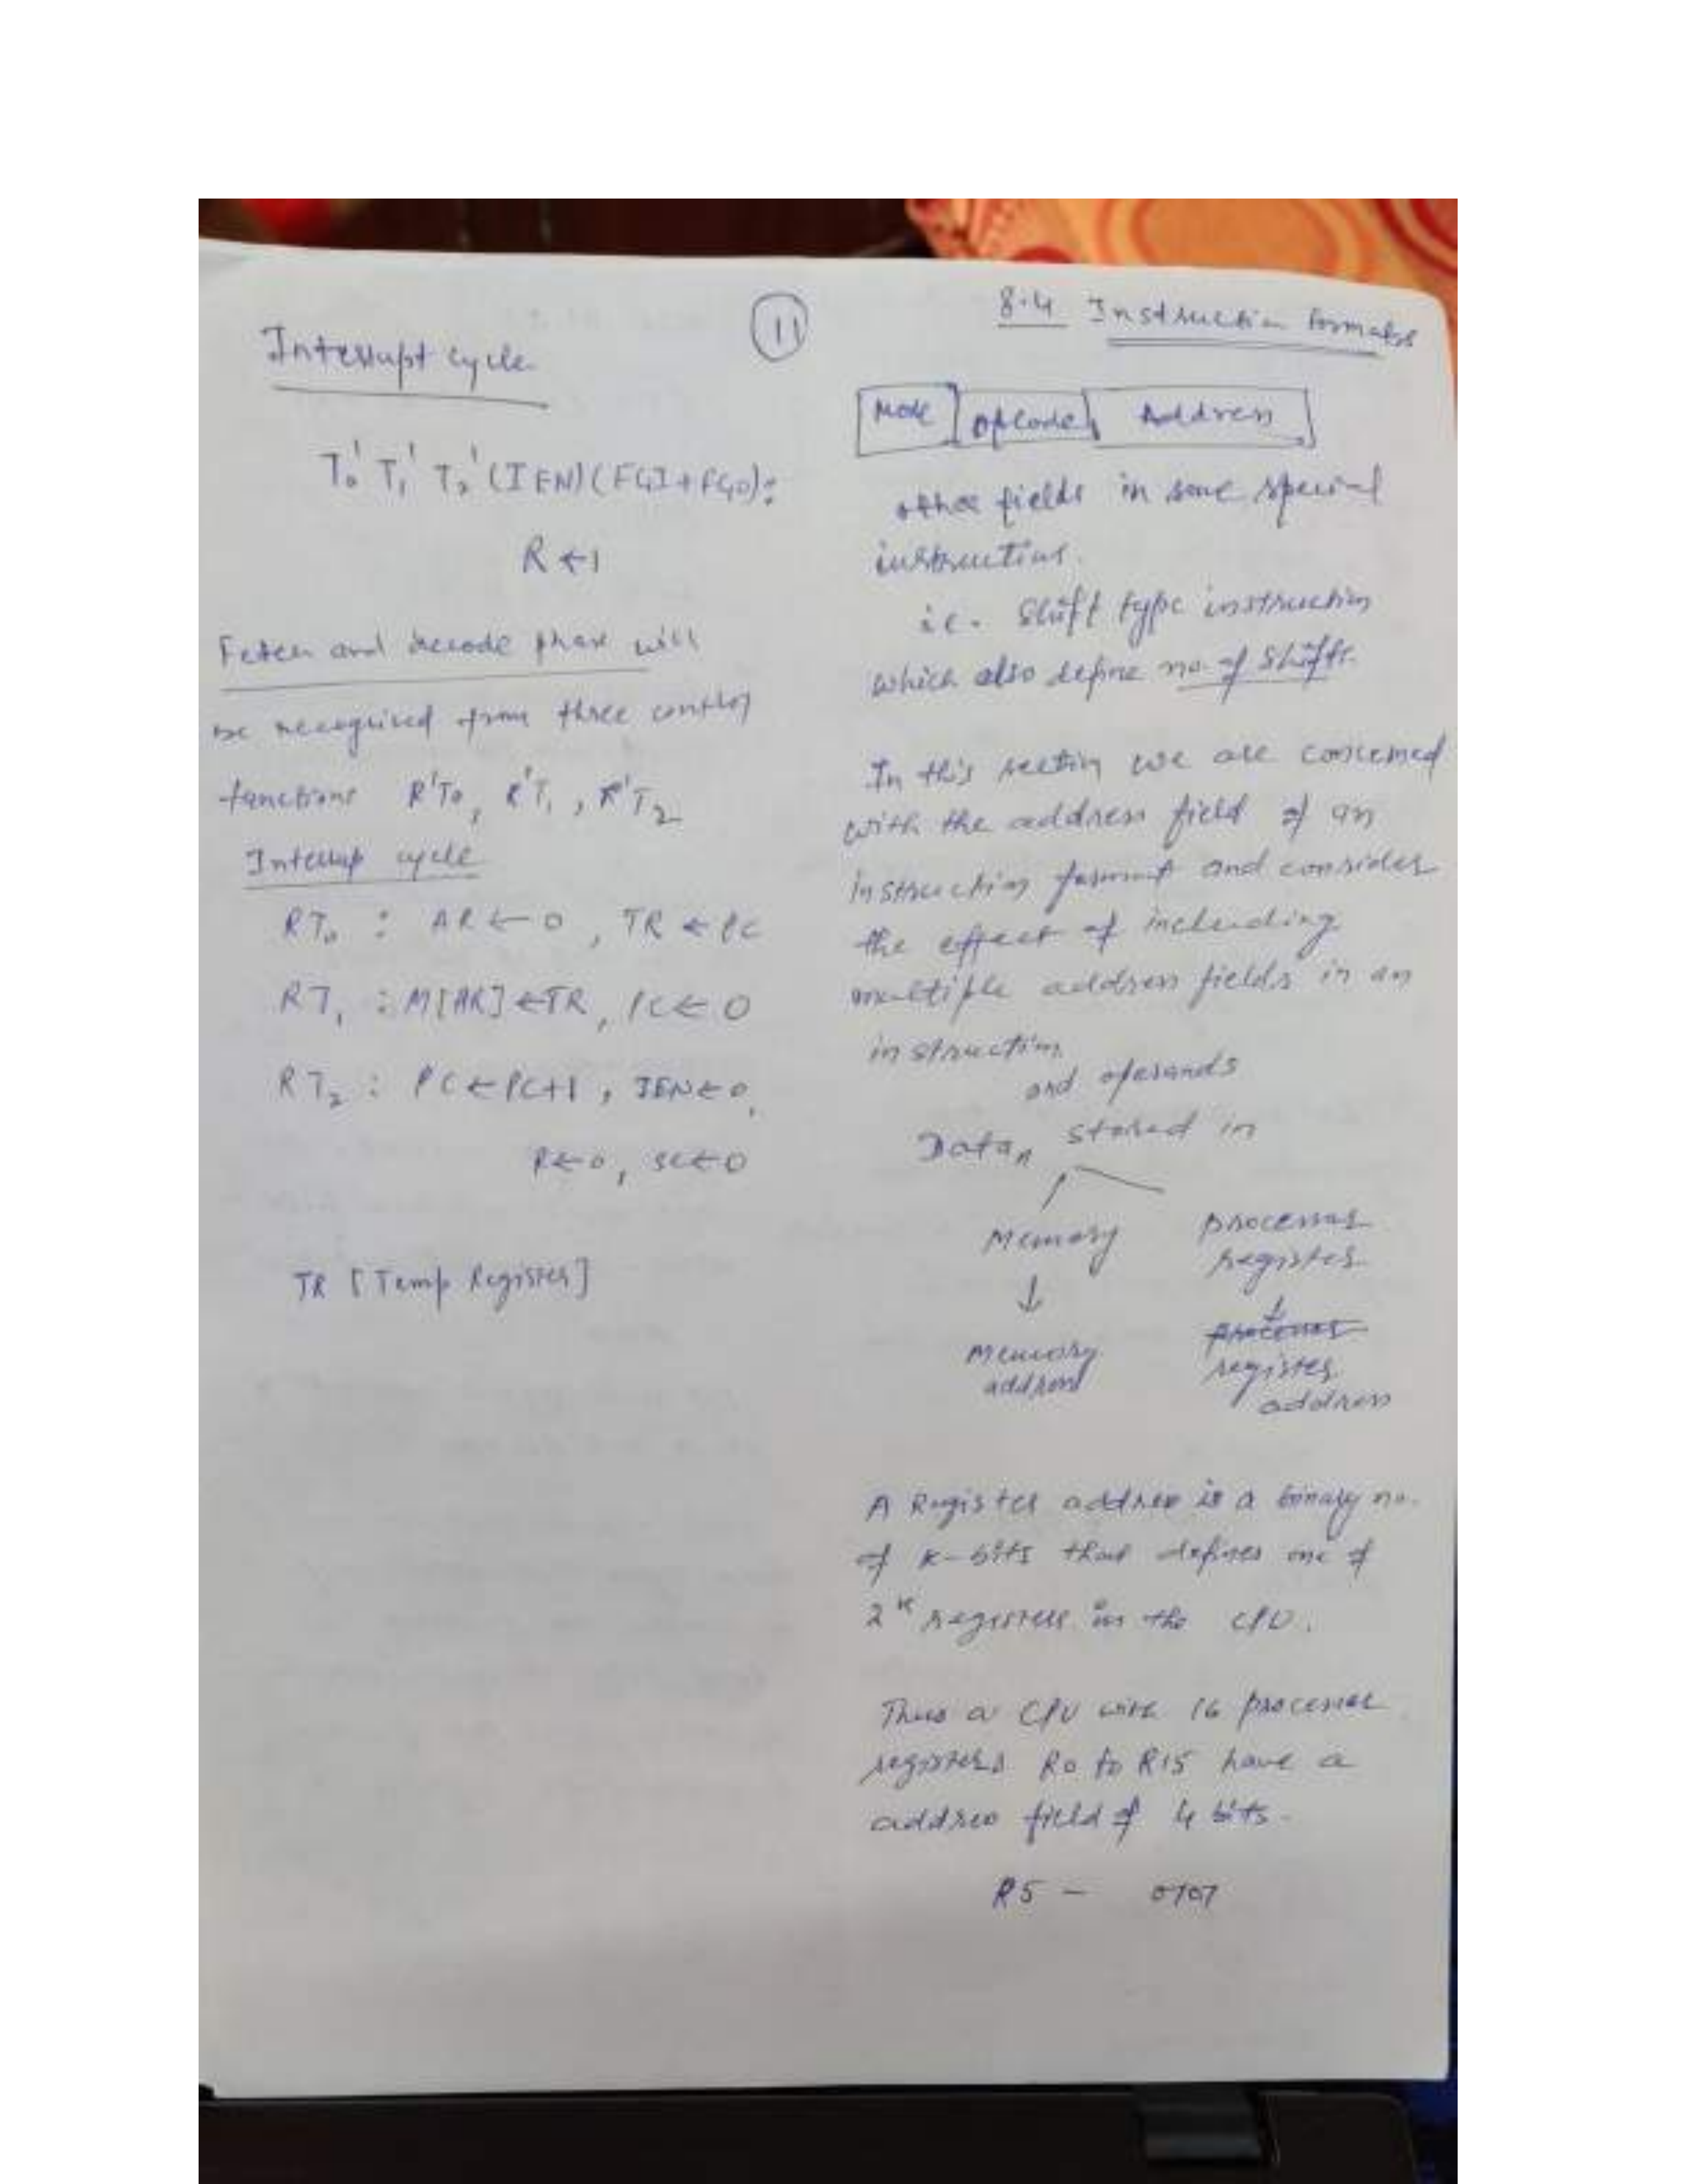 Interrupt cycle
T₀' T₁' T₂' (IEN) (FGI + FGO) :
R ← 1
Fetch and decode phase will
be recognised from three control
functions R'T₀, R'T₁, R'T₂
Interrup cycle
RT₀ : AR ← 0, TR ← PC
RT₁ : M[AR] ← TR, PC ← 0
RT₂ : PC ← PC+1, IEN ← 0,
R ← 0, SC ← 0
TR [Temp Register]
11
8.4 Instruction Formats
Mode Opcode Address
other fields in some special
instructions.
ie. Shift type instruction
which also define no. of shifts.
In this section we are concerned
with the address field of an
instruction format and consider
the effect of including
multiple address fields in an
instruction
and operands
Data stored in
Memory processor
register
↓ ↓
Memory register
address address
A Register address is a binary no.
of K-bits that defines one of
2ᴷ registers in the CPU.
Thus a CPU with 16 processor
registers R0 to R15 have a
address field of 4 bits.
R5 - 0101